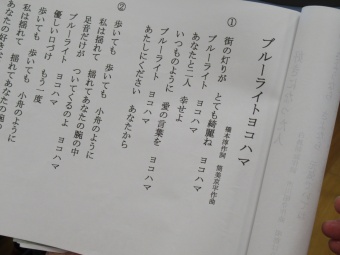 ブルーライトヨコハマ
橋本淳作詞 筒美京平作曲
① 街の灯りが とても綺麗ね
ブルーライト ヨコハマ
あなたと二人 幸せよ
いつものように 愛の言葉を
ブルーライト ヨコハマ
あたしにください あなたから
② 歩いても 歩いても 小舟のように
私は揺れて 揺れてあなたの腕の中
足音だけが ついてくるのよ
ブルーライト ヨコハマ
優しい口づけ もう一度
歩いても 歩いても 小舟のように
私は揺れて 揺れてあなたの腕の
あなたの好きな